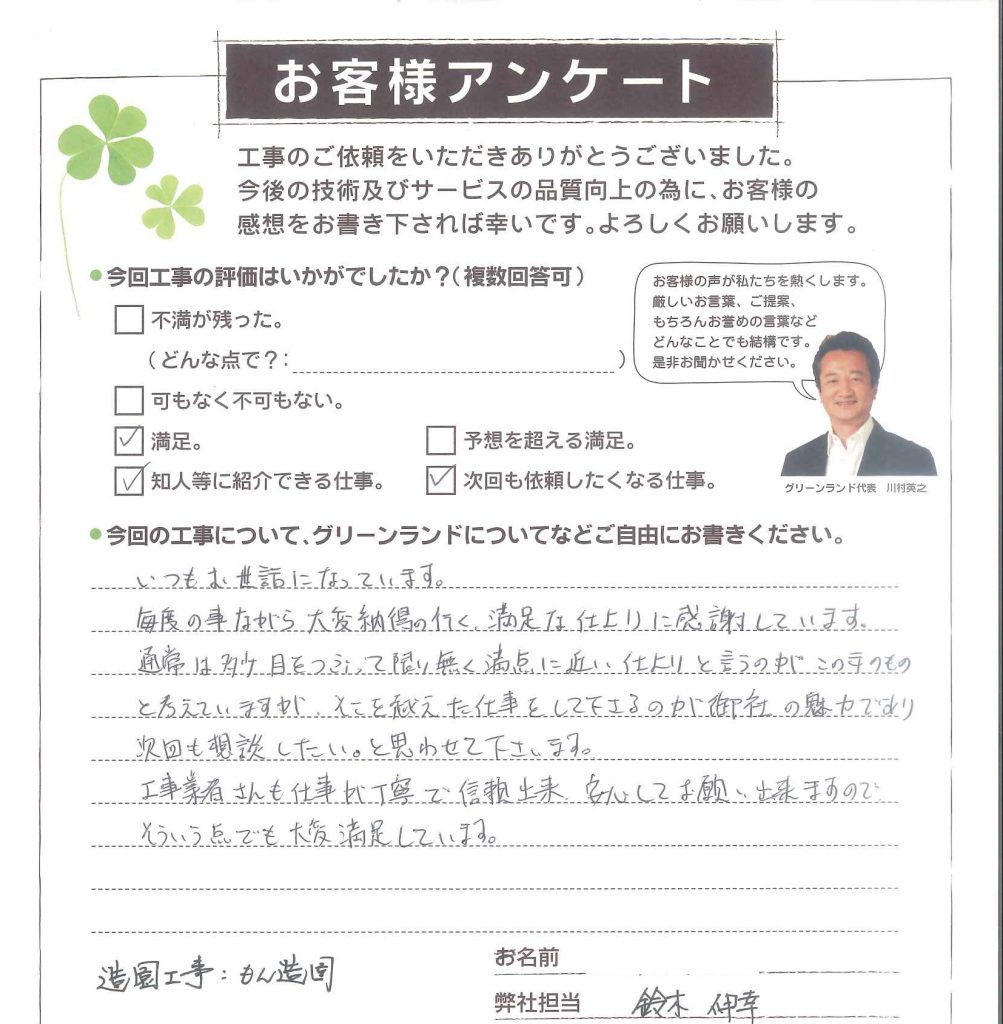 お客様アンケート
工事のご依頼をいただきありがとうございました。
今後の技術及びサービスの品質向上の為に、お客様の
感想をお書き下されば幸いです。よろしくお願いします。
今回工事の評価はいかがでしたか？（複数回答可）
不満が残った。
（どんな点で？：　）
可もなく不可もない。
満足。
予想を超える満足。
知人等に紹介できる仕事。
次回も依頼したくなる仕事。
お客様の声が私たちを熱くします。
厳しいお言葉、ご提案、
もちろんお誉めの言葉など
どんなことでも結構です。
是非お聞かせください。
グリーンランド代表　川村英之
今回の工事について、グリーンランドについてなどご自由にお書きください。
いつもお世話になっています。
毎度の事ながら大変納得の行く、満足な仕上りに感謝しています。
通常は多少目をつぶって限り無く満点に近い仕上りと言うのがこの手のもの
と考えていますが、そこを越えた仕事をして下さるのが御社の魅力であり
次回も相談したい。と思わせて下さいます。
工事業者さんも仕事が丁寧で信頼出来、安心してお願い出来ますので、
そういう点でも大変満足しています。
造園工事：もん造園
お名前
弊社担当　鈴木 伸幸